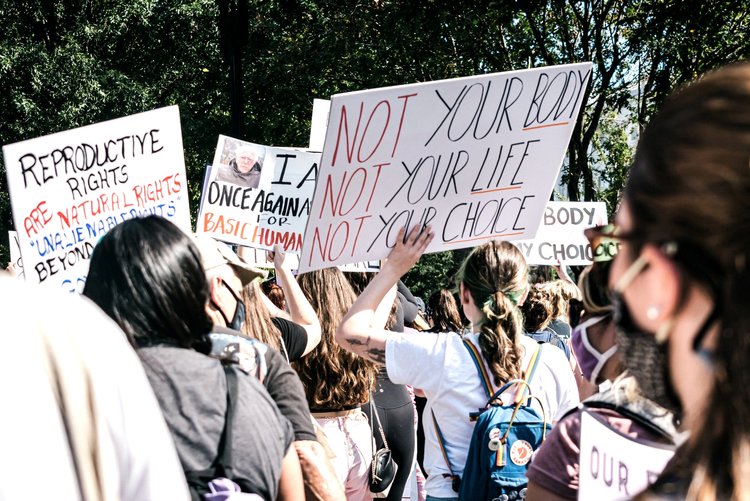 REPRODUCTIVE
RIGHTS
ARE NATURAL RIGHTS
"UNALIENABLE RIGHTS"
BEYOND
I A
ONCE AGAIN A
FOR
BASIC HUMAN
NOT YOUR BODY
NOT YOUR LIFE
NOT YOUR CHOICE
BODY
MY CHOI
OUR